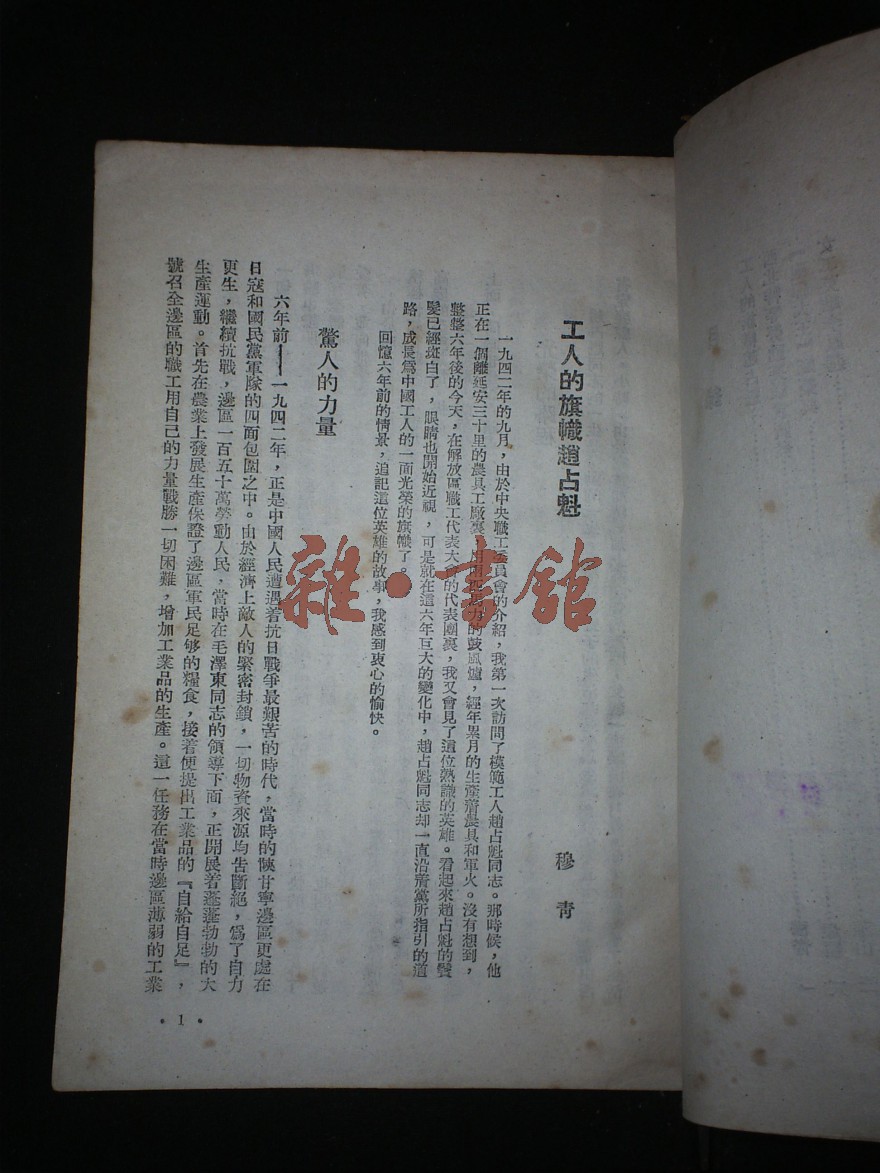 工人的旗幟趙占魁
穆青
一九四二年的九月，由於中央職工委員會的介紹，我第一次訪問了模範工人趙占魁同志。那時候，他
正在一個離延安三十里的農具工廠裏，用的鼓風爐，經年累月的生產着農具和軍火。沒有想到，
整整六年後的今天，在解放區職工代表大會的代表團裏，我又會見了這位熟識的英雄。看起來趙占魁的鬢
髮已經斑白了，眼睛也開始近視，可是就在這六年巨大的變化中，趙占魁同志却一直沿着黨所指引的道
路，成長爲中國工人的一面光榮的旗幟了。
回憶六年前的情景，追記這位英雄的故事，我感到衷心的愉快。
驚人的力量
六年前——一九四二年，正是中國人民遭遇着抗日戰爭最艱苦的時代，當時的陝甘寧邊區更處在
日寇和國民黨軍隊的四面包圍之中。由於經濟上敵人的緊密封鎖，一切物資來源均告斷絕，爲了自力
更生，繼續抗戰，邊區一百五十萬勞動人民，當時在毛澤東同志的領導下面，正開展着蓬蓬勃勃的大
生產運動。首先在農業上發展生產保證了邊區軍民足够的糧食，接着便提出工業品的『自給自足』，
號召全邊區的職工用自己的力量戰勝一切困難，增加工業品的生產。這一任務在當時邊區薄弱的工業
·1·
雜·書館